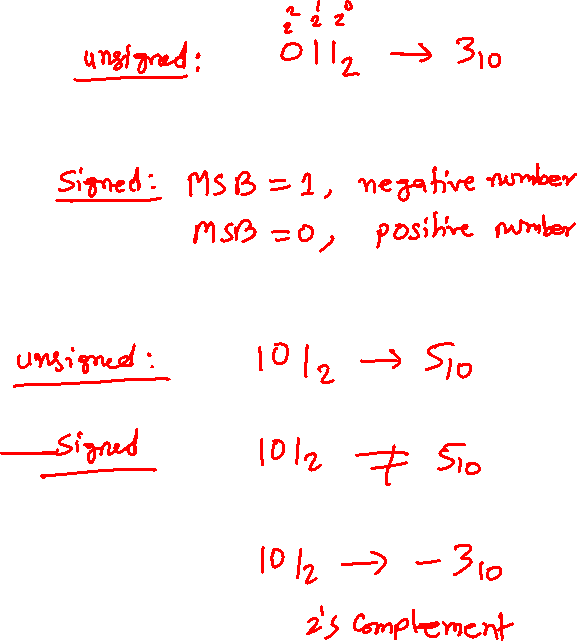 2² 2¹ 2⁰
unsigned: 011₂ → 3₁₀
Signed: MSB = 1, negative number
MSB = 0, positive number
unsigned: 101₂ → 5₁₀
Signed 101₂ ≠ 5₁₀
101₂ → -3₁₀
2's complement